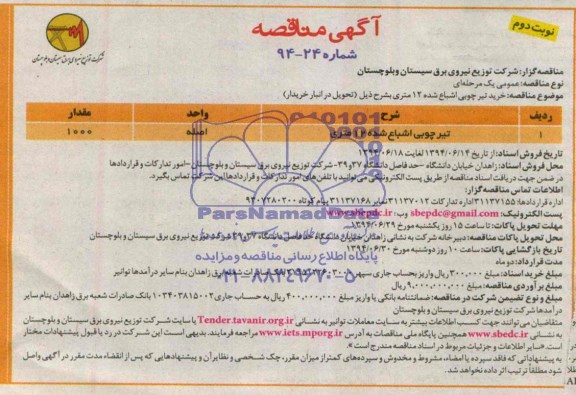 نوبت دوم
آگهی مناقصه
شماره ۲۴-۹۴
شرکت توزیع نیروی برق سیستان و بلوچستان
مناقصه گزار: شرکت توزیع نیروی برق سیستان وبلوچستان
نوع مناقصه: عمومی یک مرحله‌ای
موضوع مناقصه: خرید تیر چوبی اشباع شده ۱۲ متری بشرح ذیل (تحویل در انبار خریدار)
ردیف شرح واحد مقدار
۱ تیر چوبی اشباع شده ۱۲ متری اصله ۱۰۰۰
تاریخ فروش اسناد: از تاریخ ۱۳۹۴/۰۶/۱۴ لغایت ۱۳۹۴/۰۶/۱۸
محل فروش اسناد: زاهدان خیابان دانشگاه -حدفاصل دانشگاه ۳۷و۳۹- شرکت توزیع نیروی برق سیستان و بلوچستان -امور تدارکات و قراردادها
در ضمن جهت دریافت اسناد مناقصه از طریق پست الکترونیکی می‌توانید با تلفن‌های امور تدارکات و قراردادها این شرکت تماس بگیرد.
اطلاعات تماس مناقصه گزار:
اداره قراردادها: ۳۱۱۳۷۱۵۵ اداره تدارکات ۳۱۱۳۷۰۱۲ نمابر ۳۱۱۳۷۱۶۸ پیام کوتاه
پست الکترونیک: sbepdc@gmail.com وب: www.sbepdc.ir
مهلت تحویل پاکات: تا ساعت ۱۵ روز یکشنبه مورخ ۱۳۹۴/۰۶/۲۹
محل تحویل پاکات مناقصه: دبیرخانه شرکت به نشانی زاهدان خیابان دانشگاه حدفاصل دانشگاه ۳۷و۳۹ شرکت توزیع نیروی برق سیستان و بلوچستان
تاریخ بازگشایی پاکات: ساعت ۱۰ روز دوشنبه مورخ ۱۳۹۴/۰۶/۳۰
مدت قرارداد: دو ماه
مبلغ خرید اسناد: مبلغ ۳۰۰,۰۰۰ ریال واریز بحساب جاری سپهر بانک صادرات شعبه برق زاهدان بنام سایر درآمدها توانیر
مبلغ برآوردی مناقصه: مبلغ ۹,۰۰۰,۰۰۰,۰۰۰ ریال
مبلغ و نوع تضمین شرکت در مناقصه: ضمانتنامه بانکی یا واریز مبلغ ۴۰۰,۰۰۰,۰۰۰ ریال به حساب جاری ۰۱۰۳۴۰۳۸۱۵۰۰۲ بانک صادرات شعبه برق زاهدان بنام سایر
درآمدها شرکت توزیع نیروی برق سیستان و بلوچستان
متقاضیان می‌توانند جهت کسب اطلاعات بیشتر به سایت معاملات توانیر به نشانی Tender.tavanir.org.ir یا سایت شرکت توزیع نیروی برق سیستان و بلوچستان
به نشانی www.sbepdc.ir همچنین پایگاه ملی مناقصات به آدرس www.iets.mporg.ir مراجعه فرمایند. بدیهی است این شرکت در رد یا قبول پیشنهادات مختار
است «سایر اطلاعات و جزئیات مربوط در اسناد مناقصه مندرج است».
به پیشنهاداتی که فاقد سپرده یا امضاء، مشروط و مخدوش و سپرده‌های کمتر از میزان مقرر، چک شخصی و نظایر آن و پیشنهادهایی که پس از انقضاء مدت مقرر در آگهی واصل
شود مطلقاً ترتیب اثر داده نخواهد شد.
ParsNamadData
پایگاه اطلاع رسانی مناقصه و مزایده
۰۲۱-۸۸۳۴۹۶۷۰-۵